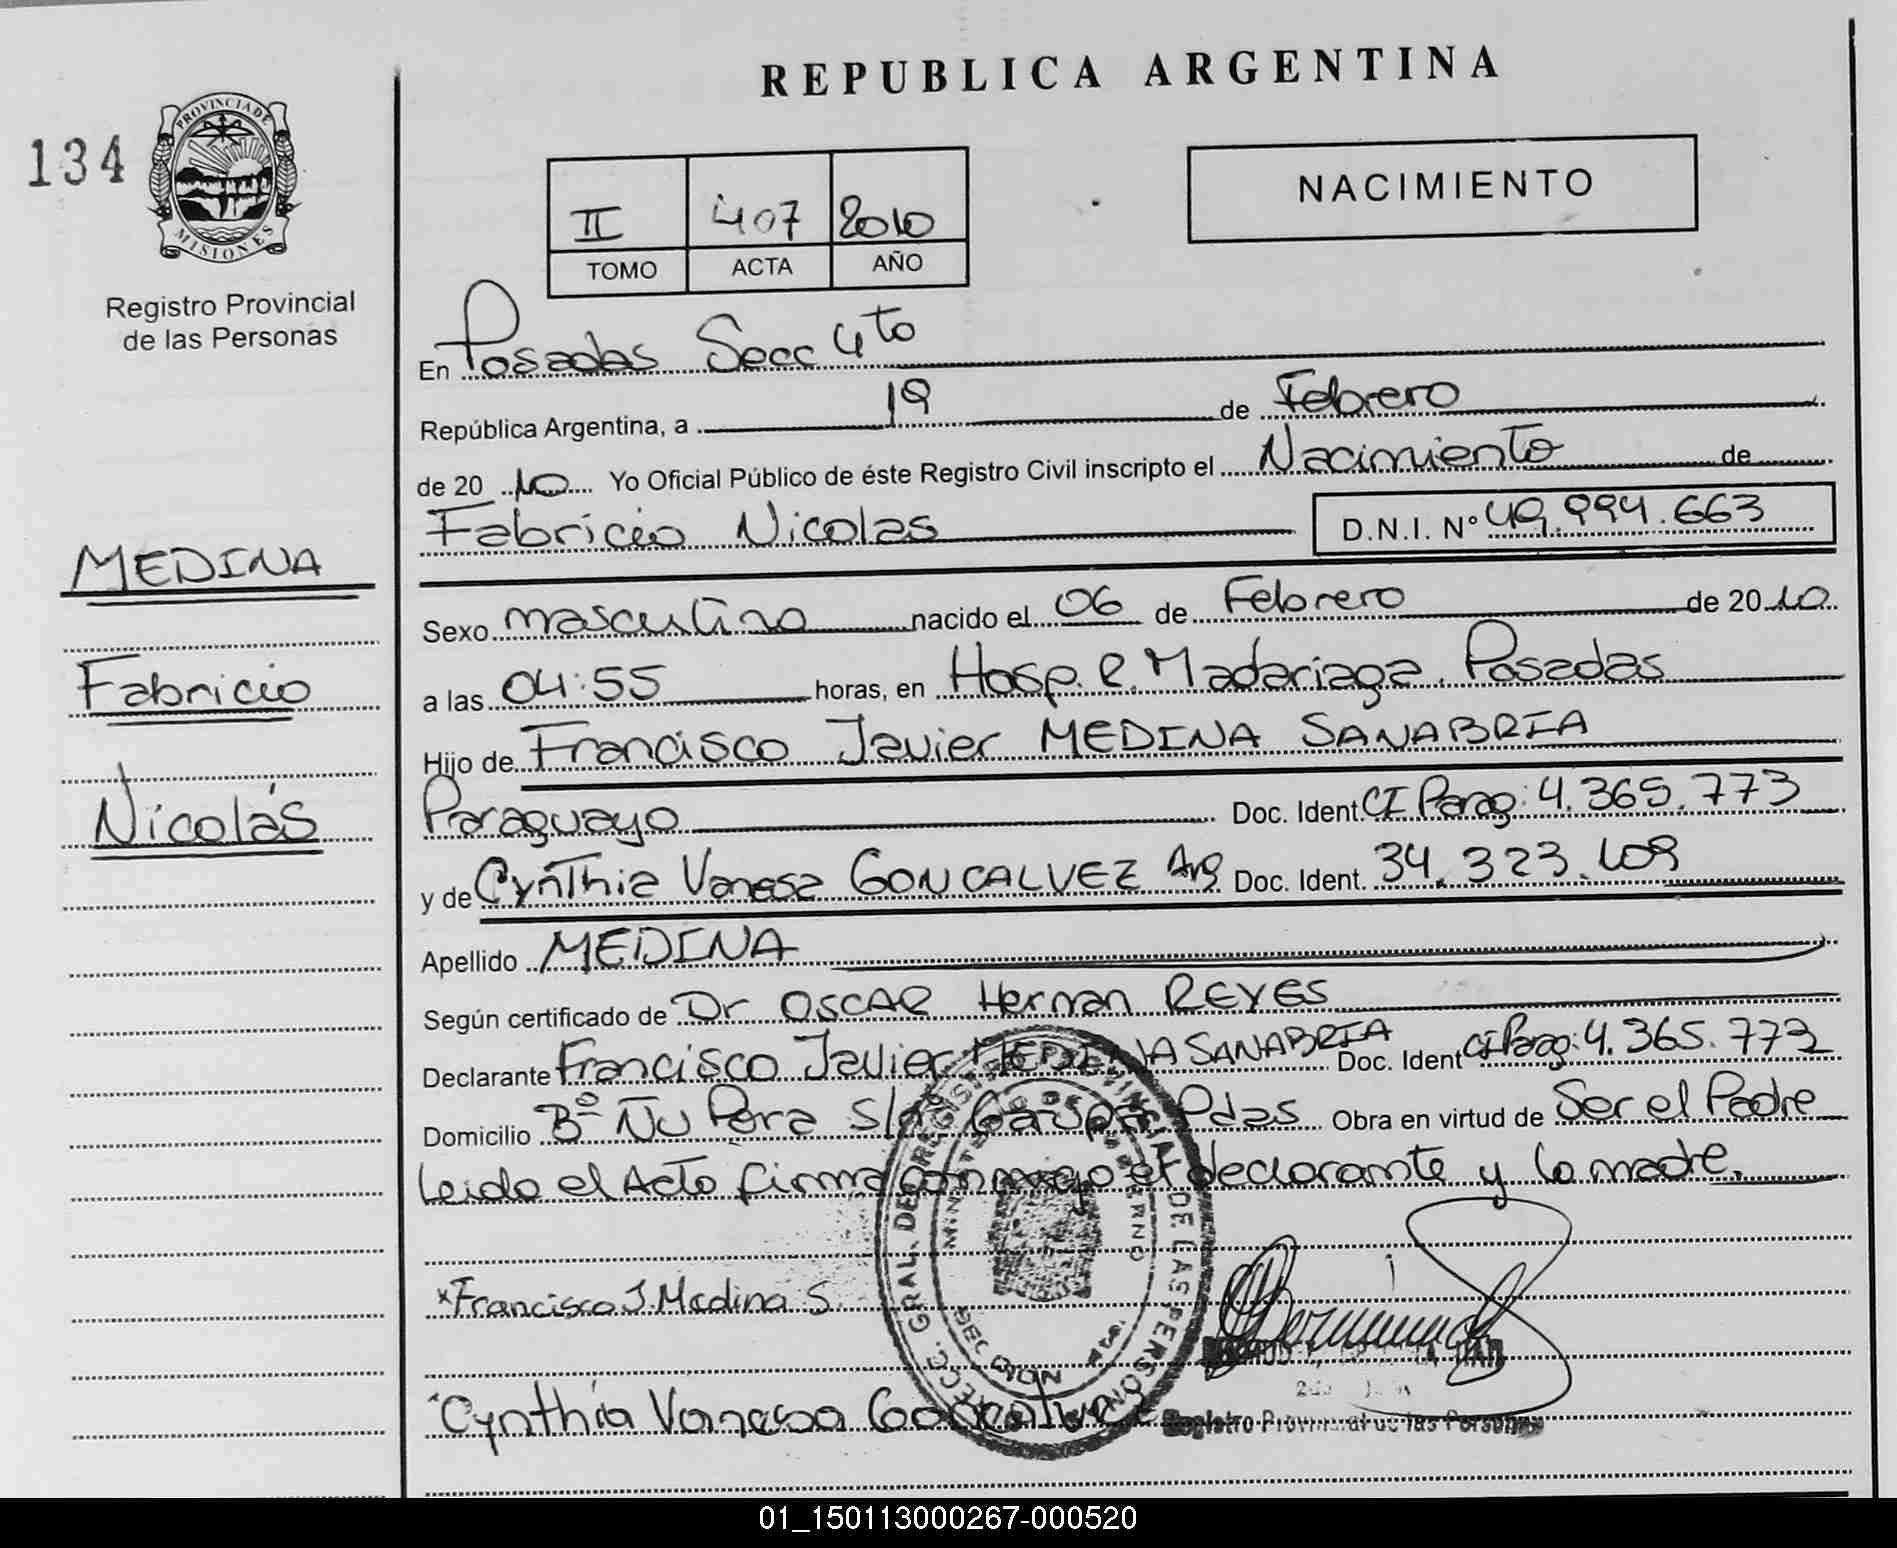 REPUBLICA ARGENTINA
134
PROVINCIA DE MISIONES
Registro Provincial
de las Personas
II 407 2010
TOMO ACTA AÑO
NACIMIENTO
En Posadas Secc 4to
República Argentina, a 19 de Febrero
de 20 10 Yo Oficial Público de éste Registro Civil inscripto el Nacimiento de
Fabricio Nicolas D.N.I. Nº 49.994.663
MEDINA
Fabricio
Nicolás
Sexo masculino nacido el 06 de Febrero de 20 10
a las 04:55 horas, en Hosp. R. Madariaga. Posadas
Hijo de Francisco Javier MEDINA SANABRIA
Paraguayo Doc. Ident. CI Parag: 4.365.773
y de Cynthia Vanesa GONCALVEZ Arg Doc. Ident. 34.323.109
Apellido MEDINA
Según certificado de Dr OSCAR Hernan REYES
Declarante Francisco Javier MEDINA SANABRIA Doc. Ident CI Parag: 4.365.773
Domicilio Bº Ñu Pora Pdas Obra en virtud de Ser el Padre
Leido el Acto firma conmigo el declarante y la madre.
x Francisco J. Medina S.
Cynthia Vanessa
DIRECC. GRAL. DE REGISTRO PROVINCIAL DE LAS PERSONAS
MINISTERIO DE GOBIERNO
SECCION 4ta.
Registro Provincial de las Personas
01_150113000267-000520